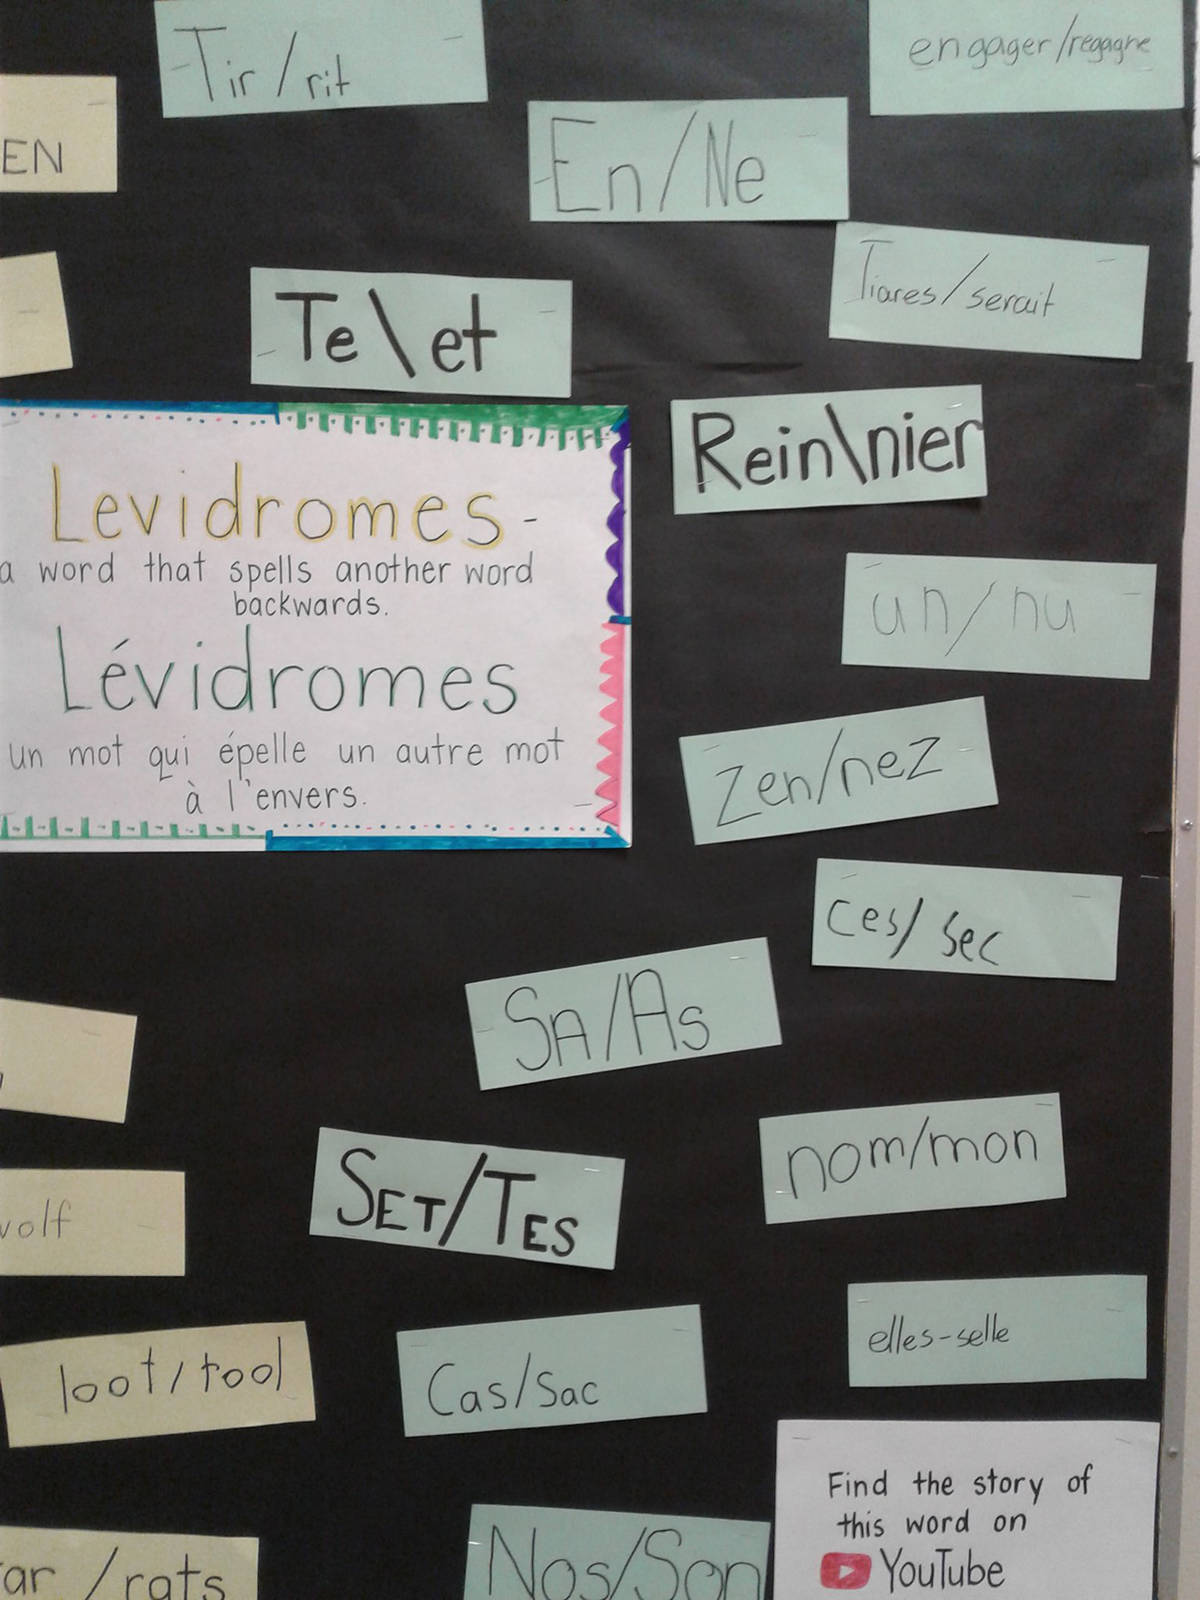 Tir/rit
engager/regagne
EN
En/Ne
Tiares/serait
Te\et
Rein\nier
Levidromes-
a word that spells another word
backwards.
Lévidromes
un mot qui épelle un autre mot
à l'envers.
un/nu
Zen/nez
ces/sec
SA/As
nom/mon
SET/TES
volf
elles-selle
loot/tool
Cas/sac
Find the story of
this word on
YouTube
Nos/Son
ar/rats